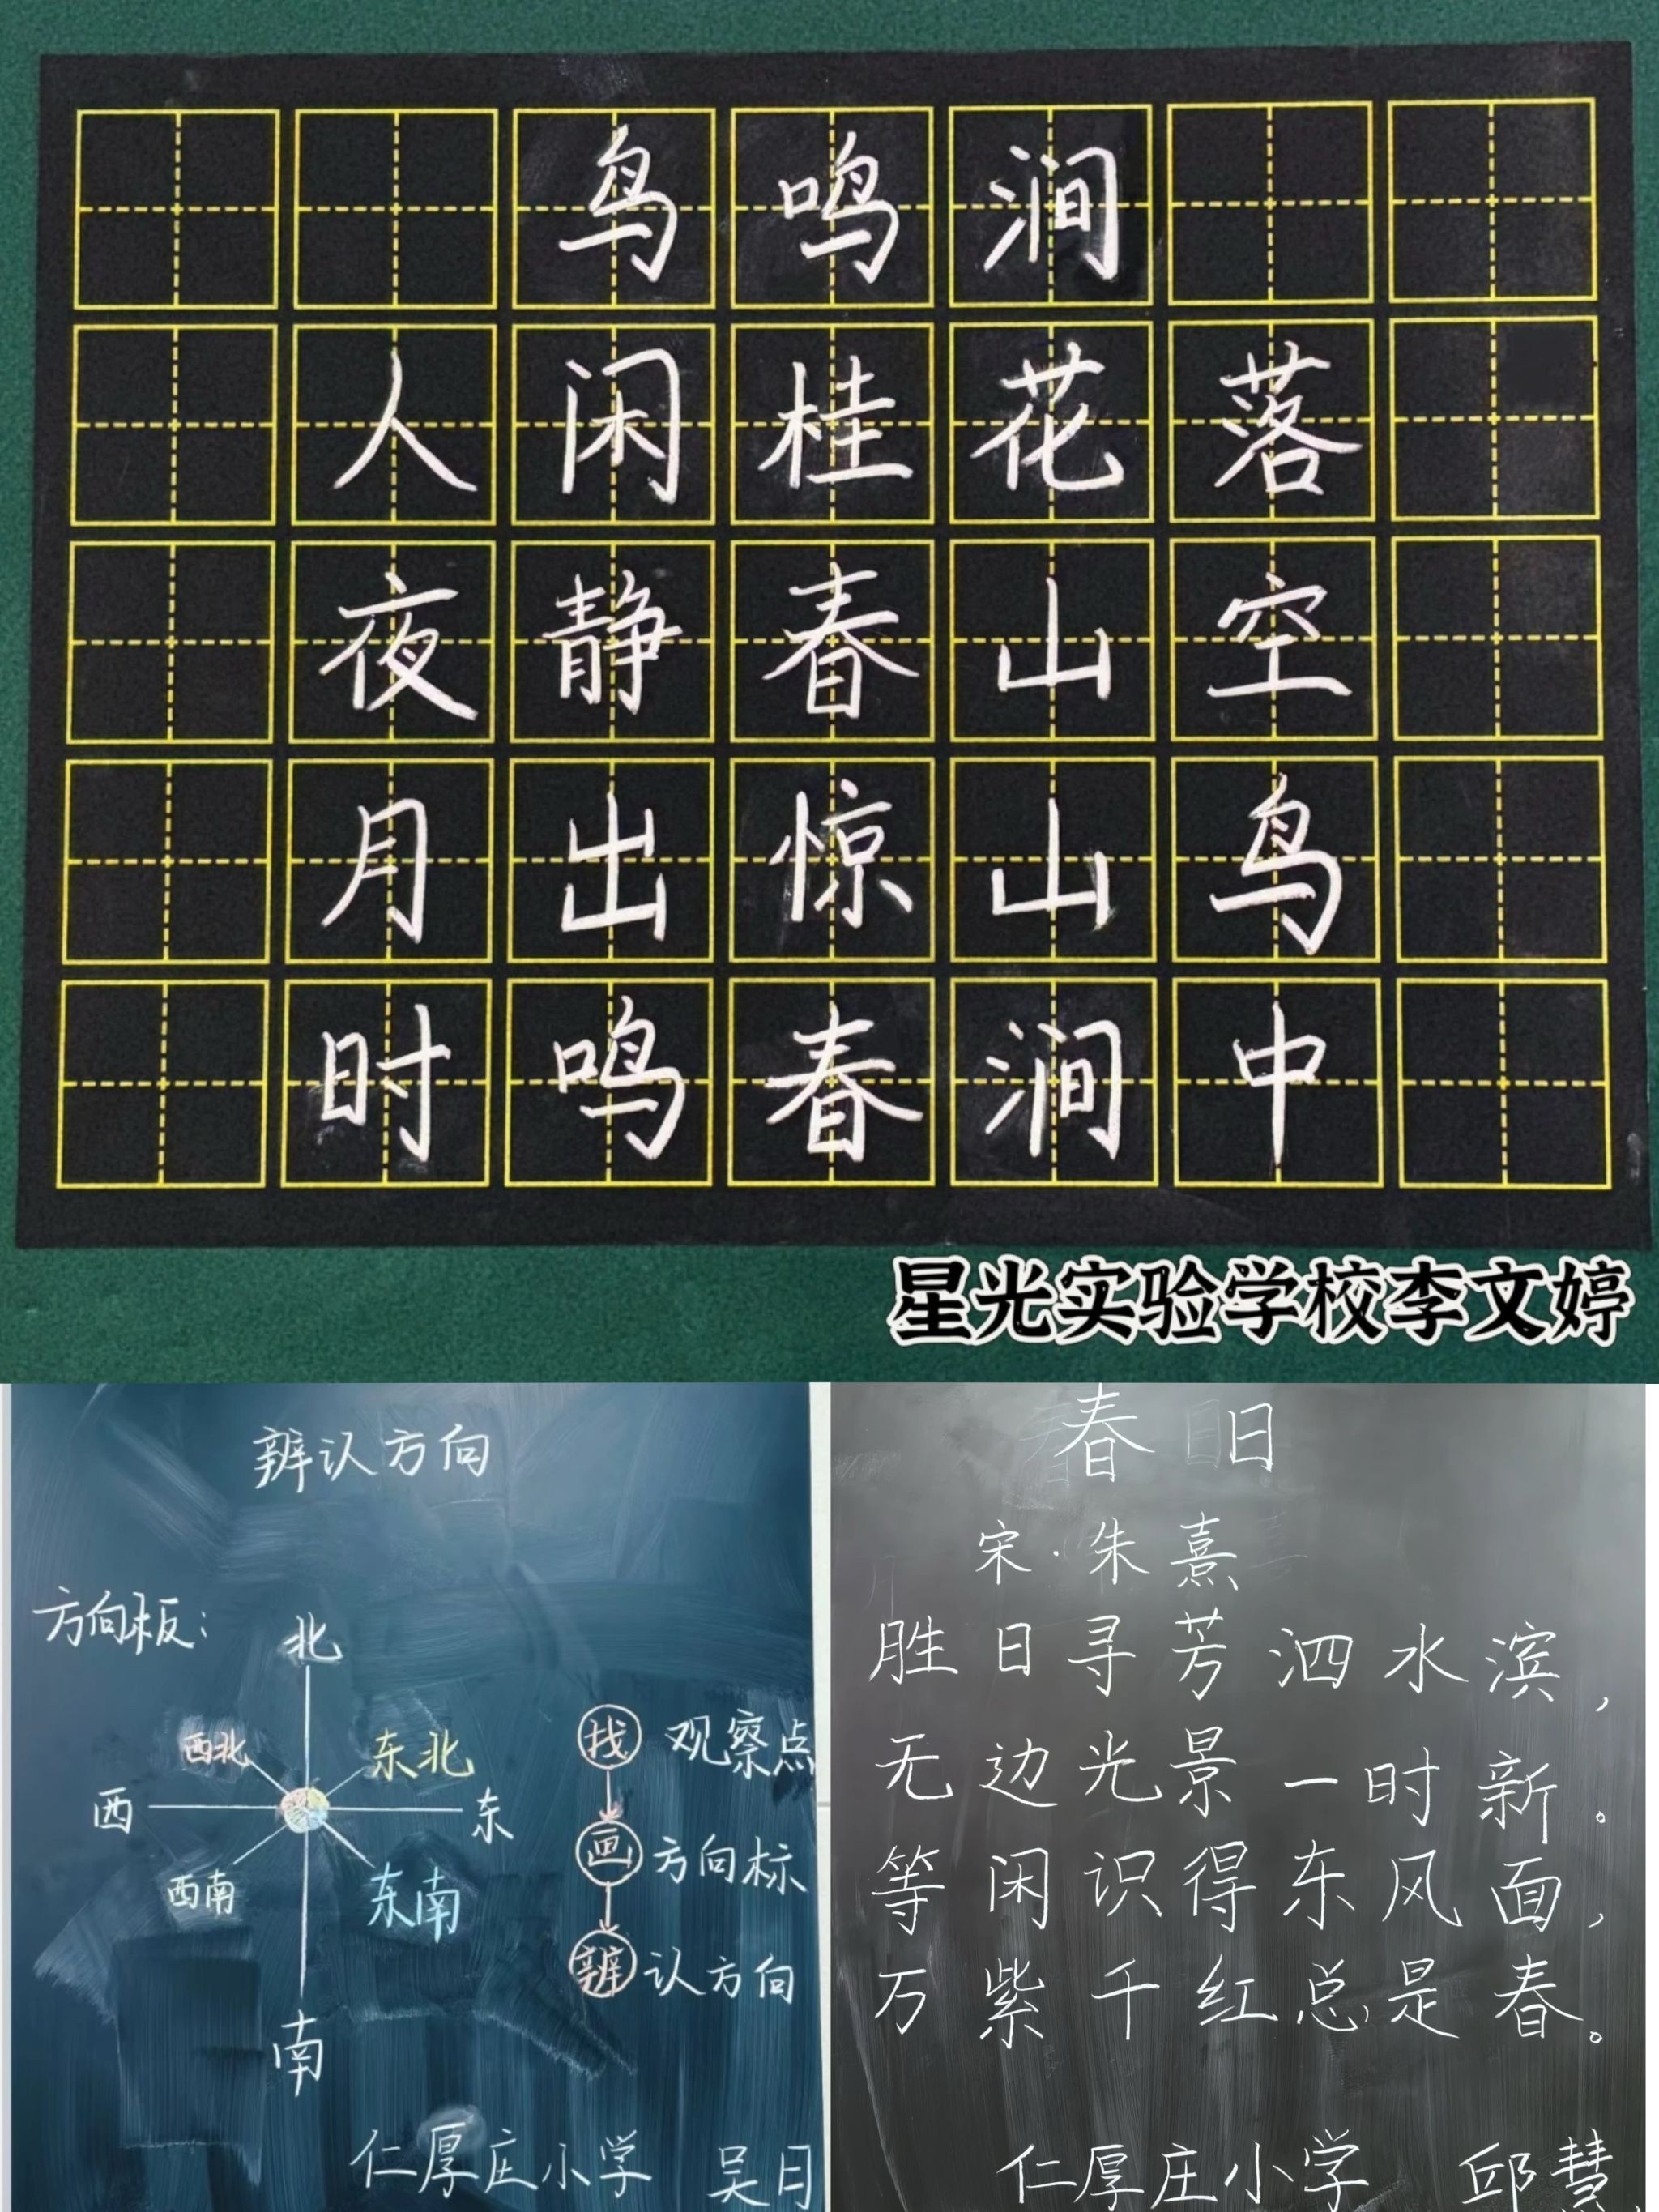 鸟鸣涧
人闲桂花落
夜静春山空
月出惊山鸟
时鸣春涧中
星光实验学校李文婷
辨认方向
方向板：
北
西北 东北
西 东
西南 东南
南
找 观察点
画 方向标
辨 认方向
仁厚庄小学 吴月
春日
宋·朱熹
胜日寻芳泗水滨，
无边光景一时新。
等闲识得东风面，
万紫千红总是春。
仁厚庄小学 邱慧